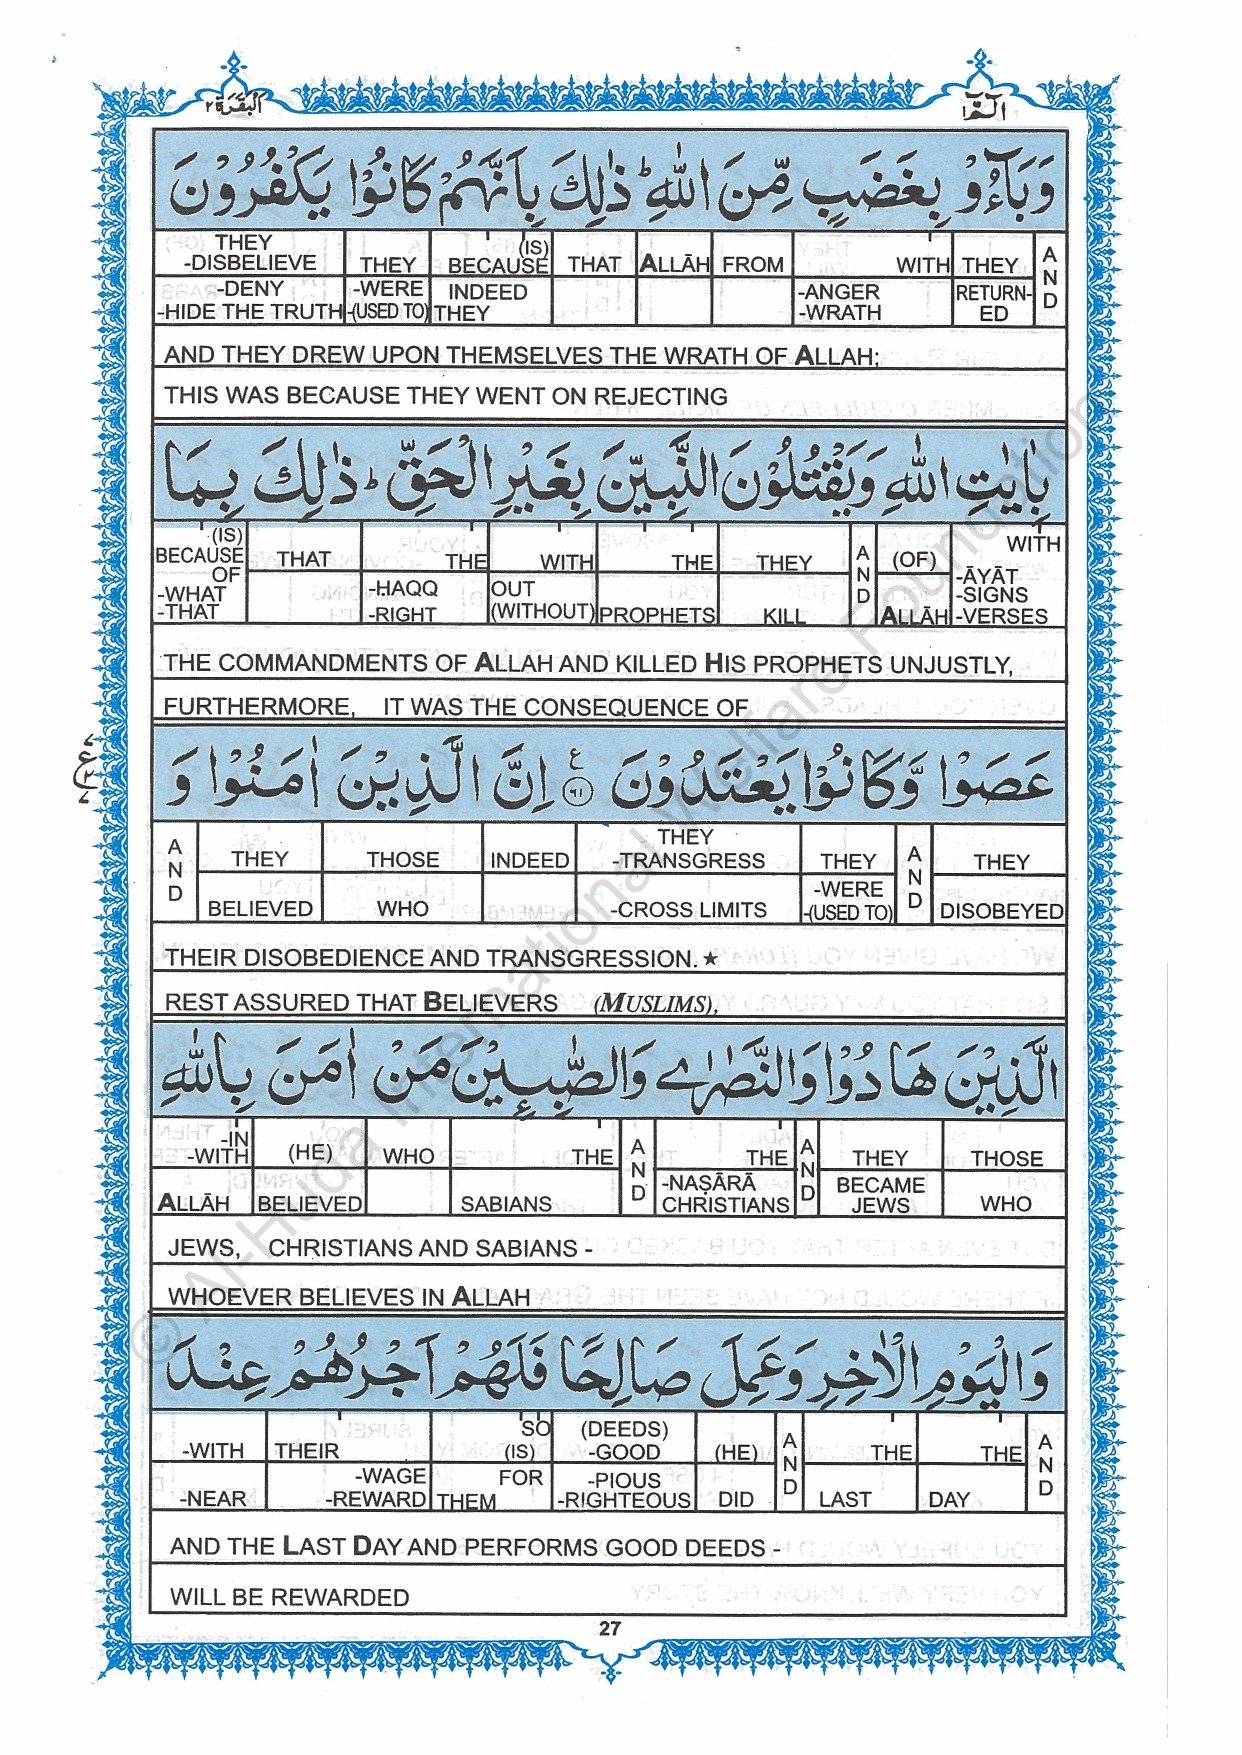 البقرة ٢
الٓمّٓ ١
وَبَآءُوْ بِغَضَبٍ مِّنَ اللّٰهِ ؕ ذٰلِكَ بِاَنَّهُمْ كَانُوْا يَكْفُرُوْنَ
THEY (IS) A
-DISBELIEVE THEY BECAUSE THAT ALLĀH FROM WITH THEY N
-DENY -WERE INDEED -ANGER RETURN- D
-HIDE THE TRUTH -(USED TO) THEY -WRATH ED
AND THEY DREW UPON THEMSELVES THE WRATH OF ALLAH;
THIS WAS BECAUSE THEY WENT ON REJECTING
بِاٰيٰتِ اللّٰهِ وَيَقْتُلُوْنَ النَّبِيّٖنَ بِغَيْرِ الْحَقِّ ؕ ذٰلِكَ بِمَا
(IS) WITH
BECAUSE THAT THE WITH THE THEY A (OF)
OF -HAQQ OUT N -ĀYĀT
-WHAT (WITHOUT) D -SIGNS
-THAT -RIGHT PROPHETS KILL ALLĀH -VERSES
THE COMMANDMENTS OF ALLAH AND KILLED HIS PROPHETS UNJUSTLY,
FURTHERMORE, IT WAS THE CONSEQUENCE OF
عَصَوْا وَّكَانُوْا يَعْتَدُوْنَ ۧ ٦١ اِنَّ الَّذِيْنَ اٰمَنُوْا وَ
A THEY
N THEY THOSE INDEED -TRANSGRESS THEY A THEY
D -WERE N
BELIEVED WHO -CROSS LIMITS -(USED TO) D DISOBEYED
THEIR DISOBEDIENCE AND TRANSGRESSION. ★
REST ASSURED THAT BELIEVERS (MUSLIMS),
الَّذِيْنَ هَادُوْا وَالنَّصٰرٰى وَالصّٰبِـِٕيْنَ مَنْ اٰمَنَ بِاللّٰهِ
-IN A A
-WITH (HE) WHO THE N THE N THEY THOSE
D -NAṢĀRĀ D BECAME
ALLĀH BELIEVED SABIANS CHRISTIANS JEWS WHO
JEWS, CHRISTIANS AND SABIANS -
WHOEVER BELIEVES IN ALLAH
وَالْيَوْمِ الْاٰخِرِ وَعَمِلَ صَالِحًا فَلَهُمْ اَجْرُهُمْ عِنْدَ
SO (DEEDS) A A
-WITH THEIR (IS) -GOOD (HE) N THE THE N
-WAGE FOR -PIOUS D D
-NEAR -REWARD THEM -RIGHTEOUS DID LAST DAY
AND THE LAST DAY AND PERFORMS GOOD DEEDS -
WILL BE REWARDED
27
© Al-Huda International Welfare Foundation